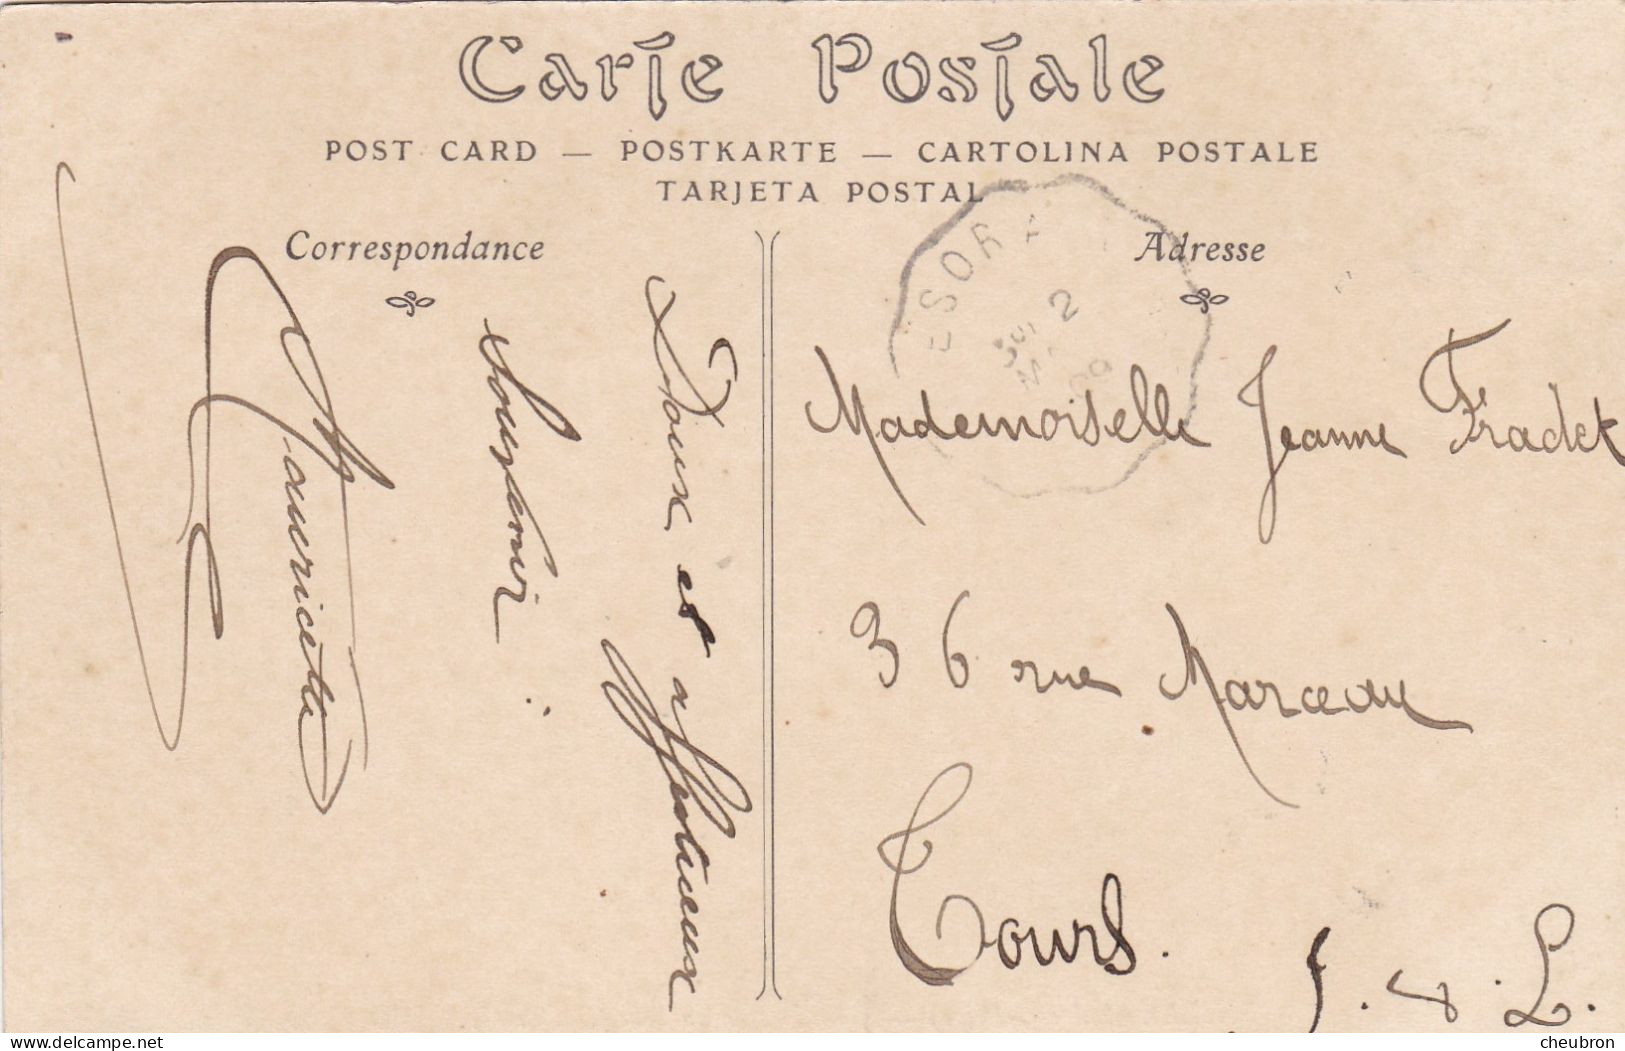 Carte Postale
POST CARD — POSTKARTE — CARTOLINA POSTALE
TARJETA POSTAL
Correspondance
Adresse
Doux et affectueux
Souvenir
Mauricette
Mademoiselle Jeanne Fradet
36 rue Marceau
Tours.
I. & L.
delcampe.net
cheubron